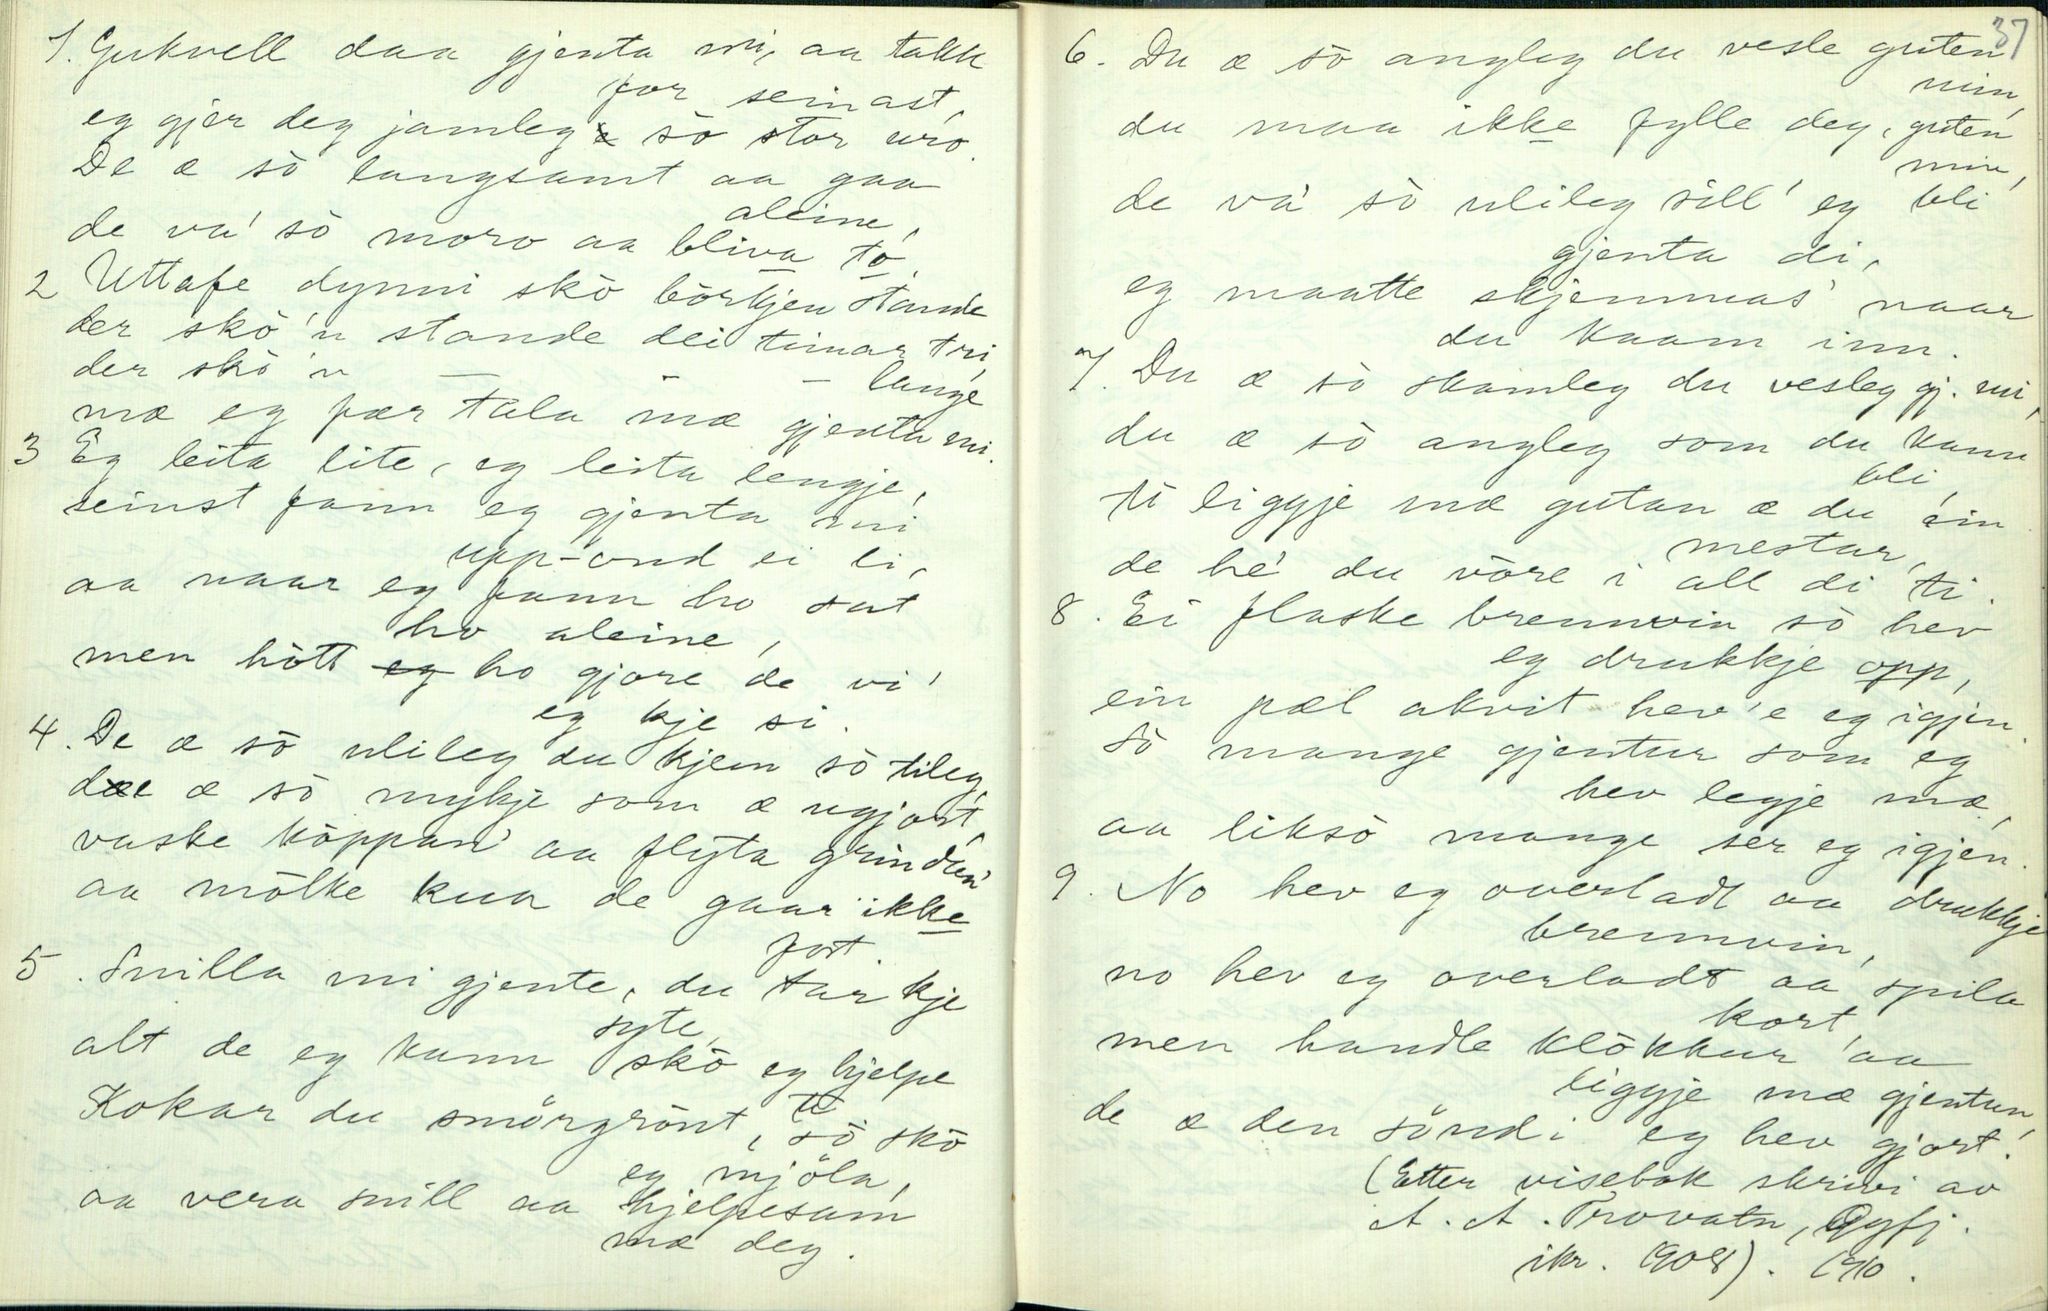 1. Gukvell daa gjenta mi, aa takk
for seinast,
eg gjer deg jamleg so stor uro.
De æ sò langsamt aa gaa
aleine,
de va' sò moro aa bliva to.
2 Uttafe dynni skò börkjen stande
der skò 'n stande dei timar tri,
der skò 'n — — — lange
mæ eg fær tala mæ gjenta mi.
3 Eg leita lite, eg leita lengje,
seinst fann eg gjenta mi
upp-ond ei li,
aa naar eg fann ho sat
ho aleine,
men hòtt ho gjore de vi'
eg kje si.
4. De æ sò ulileg du kjem sò tileg,
dæ æ sò mykje som æ ugjort,
vaske kòppan' aa flyta grindan'
aa mòlke kua de gaar ikke
fort.
5. Snilla mi gjente, du tar kje
syte,
alt de eg kann skò eg hjelpe
te
Kokar du smörgrònt, sò skò
eg mjöla,
aa vera snill aa hjelpesam
mæ deg.
37
6. Du æ sò angleg du vesle guten
min,
du maa ikke fylle deg, guten
min,
de va' sò ulileg sill' eg bli
gjenta di,
eg maatte skjemmas' naar
du kaam inn.
7. Du æ sò skamleg du vesleg gj. mi,
du æ sò angleg som du kann
bli,
ti liggje mæ gutan æ du ein
mestar,
de he' du vòre i all di ti.
8. Ei flaske brennvin sò hev
eg drukkje opp,
ein pæl akvit hev'e eg igjen.
Sò mange gjentur som eg
hev legje mæ,
aa liksò mange ser eg igjen.
9. No hev eg overladt aa drukkje
brennvin,
no hev eg overladt aa spila
kort,
men handle klòkkur aa
liggje mæ gjentun,
de æ den söndi eg hev gjort.
(Etter visebok skrivi av
A. A. Trovatn, Øyfj.
ikr. 1908). 1910.